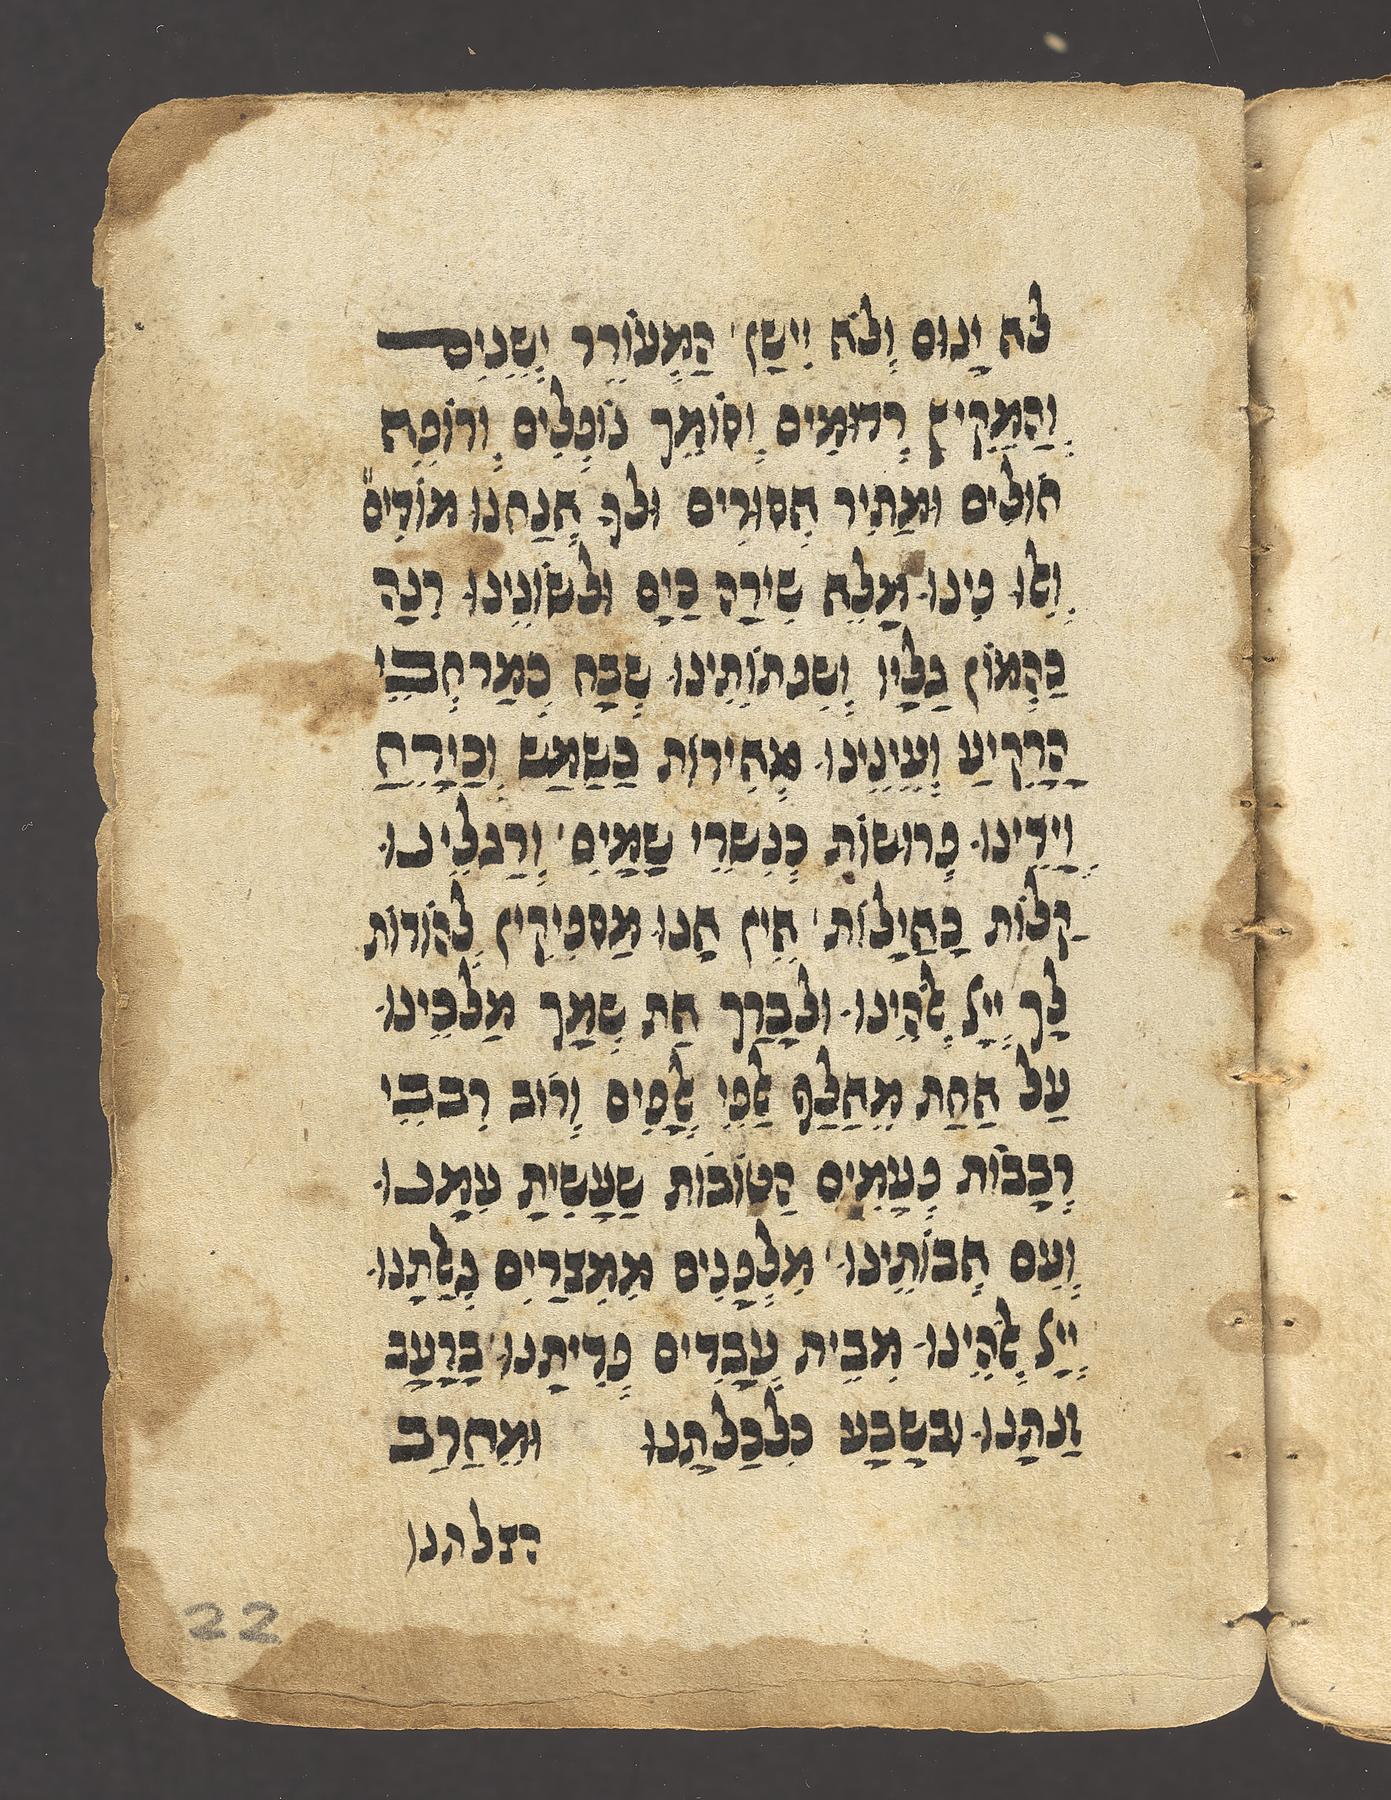 לא ינום ולא יישן המעורר ישנים
והמקיץ רדומים וסומך נופלים ורופא
חולים ומתיר אסורים ולך אנחנו מודים
ואלו פינו מלא שירה כים ולשונינו רנה
כהמון גליו ושפתותינו שבח כמרחבי
הרקיע ועינינו מאירות כשמש וכירח
וידינו פרושות כנשרי שמים ורגלינו
קלות כאילות אין אנו מספיקין להודות
לך ייי אלהינו ולברך את שמך מלכינו
על אחת מאלף אלפי אלפים ורוב רבבי
רבבות פעמים הטובות שעשית עמנו
ועם אבותינו מלפנים ממצרים גאלתנו
ייי אלהינו מבית עבדים פדיתנו ברעב
זנתנו ובשבע כלכלתנו ומחרב
הצלתנו
22